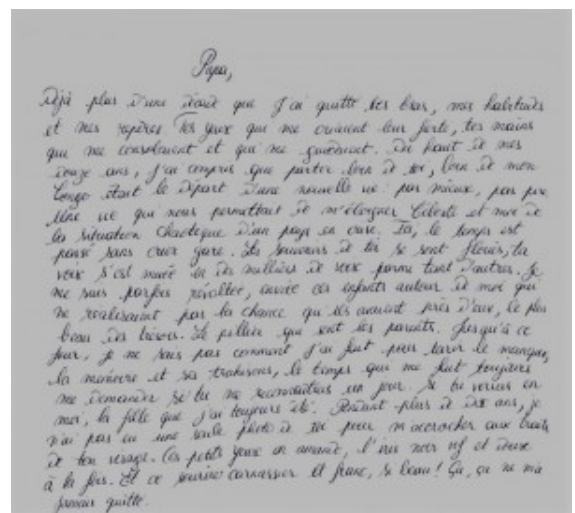 Papa,
Déjà plus d'une décade que j'ai quitté tes bras, mes habitudes
et mes repères. Tes yeux qui me criaient leur fierté, tes mains
qui me consolaient et qui me guidaient. Du haut de mes
douze ans, j'ai compris que partir loin de toi, loin de mon
Congo était le départ d'une nouvelle vie : pas mieux, pas pire
Une vie qui nous permettait de m'éloigner Céleste et moi de
la situation chaotique d'un pays en crise. Ici, le temps est
passé sans crier gare. Les souvenirs de toi se sont fleuris, ta
voix s'est muée en des milliers de voix parmi tant d'autres. Je
me suis parfois révoltée, enviée ces enfants autour de moi qui
ne réalisaient pas la chance qu'ils avaient près d'eux, le plus
beau des trésors. Le pilier que sont les parents. Jusqu'à ce
jour, je ne sais pas comment j'ai fait pour tarir le manque,
la mémoire et sa trahison, le temps qui me fait toujours
me demander si tu me reconnaitras un jour. Si tu verras en
moi, la fille que j'ai toujours été. Pendant plus de dix ans, je
n'ai pas eu une seule photo de toi pour m'accrocher aux traits
de ton visage. Ces petits yeux en amande, l'iris noir vif et doux
à la fois. Et ce sourire carnassier et franc, si beau! Ça, ça ne m'a
jamais quitté.